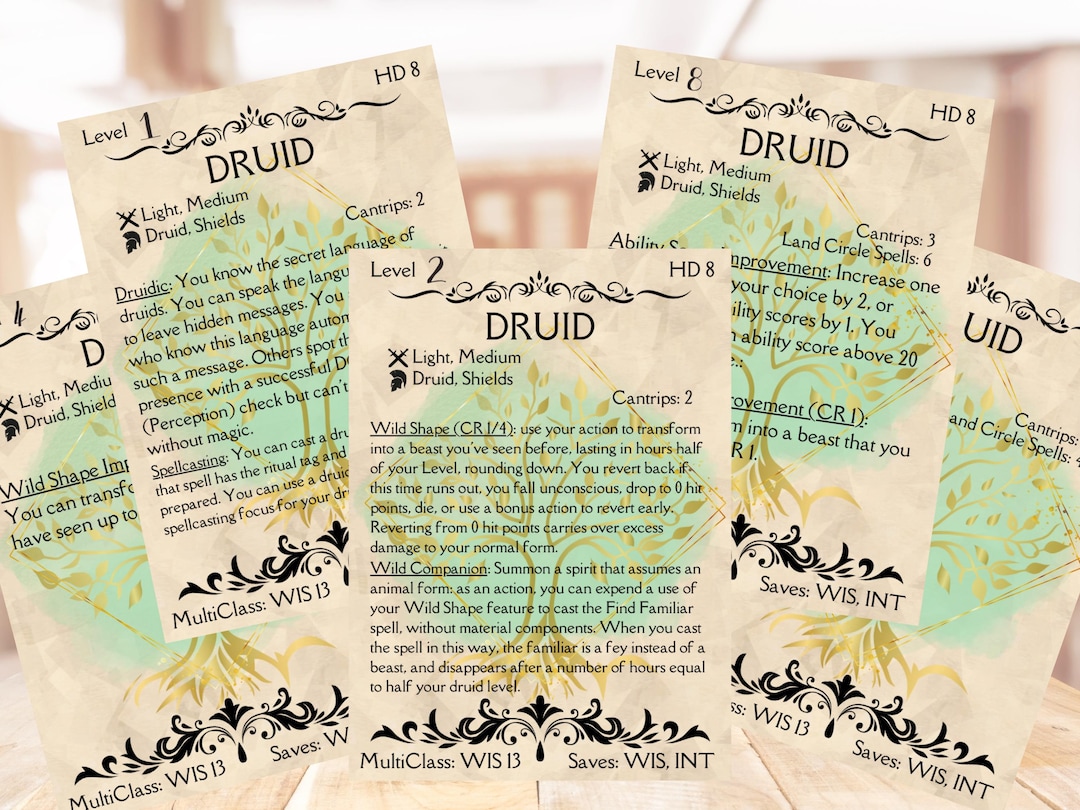 Level 1
HD 8
DRUID
Light, Medium
Druid, Shields
Cantrips: 2
Druidic: You know the secret language of
druids. You can speak the
to leave hidden messages. You
who know this language
such a message. Others spot
presence with a successful
(Perception) check but can't
without magic.
Spellcasting: You can cast a
that spell has the ritual tag and
prepared. You can use a
spellcasting focus for your
MultiClass: WIS 13
Level 8
HD 8
DRUID
Light, Medium
Druid, Shields
Cantrips: 3
Land Circle Spells: 6
Ability
Improvement: Increase one
your choice by 2, or
scores by 1. You
ability score above 20
(CR 1):
into a beast that you
Saves: WIS, INT
4
D
Light,
Druid,
Wild Shape
You can
have seen up to
MultiClass: WIS 13
Saves:
Level 2
HD 8
DRUID
Light, Medium
Druid, Shields
Cantrips: 2
Wild Shape (CR 1/4): use your action to transform
into a beast you've seen before, lasting in hours half
of your Level, rounding down. You revert back if:
this time runs out, you fall unconscious, drop to 0 hit
points, die, or use a bonus action to revert early.
Reverting from 0 hit points carries over excess
damage to your normal form.
Wild Companion: Summon a spirit that assumes an
animal form: as an action, you can expend a use of
your Wild Shape feature to cast the Find Familiar
spell, without material components. When you cast
the spell in this way, the familiar is a fey instead of a
beast, and disappears after a number of hours equal
to half your druid level.
MultiClass: WIS 13
Saves: WIS, INT
UID
Cantrips:
Circle Spells:
WIS 13
Saves: WIS, INT